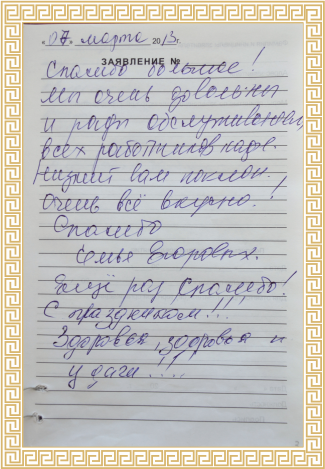 „07" марта 2013г.
ЗАЯВЛЕНИЕ №
Спасибо большое!
Мы очень довольны
и рады обслуживанием,
всех работников кафе.
Низкий вам поклон.
Очень всё вкусно!
Спасибо
Семья Егоровых.
Ещё раз спасибо!
С праздником!!!
Здоровья, здоровья и
удачи!!!
2